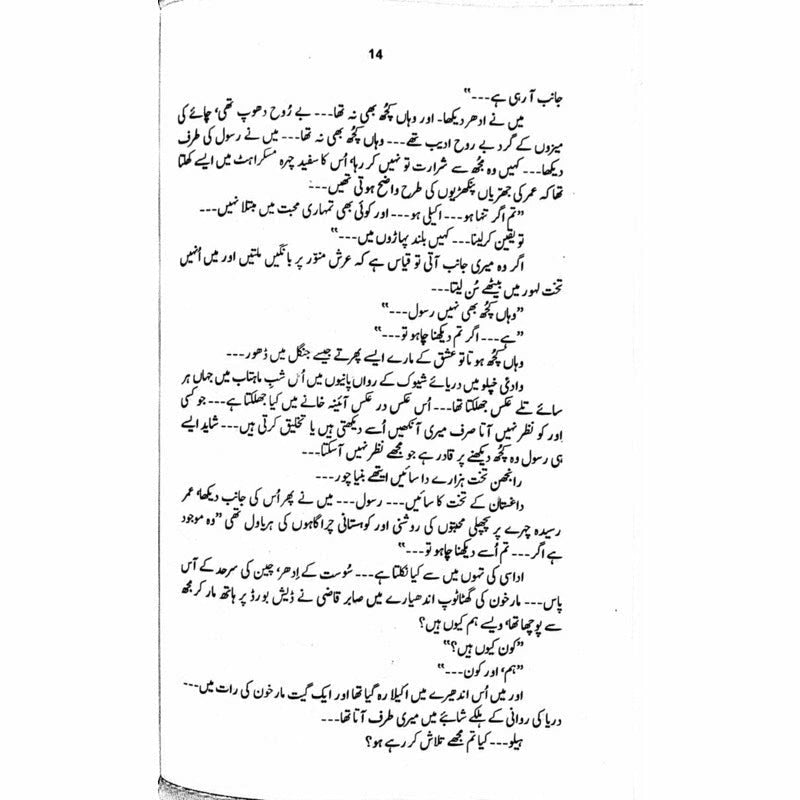 14
جانب آ رہی ہے---"
میں نے ادھر دیکھا۔ اور وہاں کچھ بھی نہ تھا--- بے رُوح دھوپ تھی، چائے کی
میزوں کے گرد بے روح ادیب تھے--- وہاں کچھ بھی نہ تھا--- میں نے رسول کی طرف
دیکھا--- کہیں وہ مجھ سے شرارت تو نہیں کر رہا، اُس کا سفید چہرہ مسکراہٹ میں ایسے کھلتا
تھا کہ عمر کی جھریاں پنکھڑیوں کی طرح واضح ہوتی تھیں---
"تم اگر تنہا ہو--- اکیلی ہو--- اور کوئی بھی تمہاری محبت میں مبتلا نہیں---
تو یقین کر لینا--- کہیں بلند پہاڑوں میں---"
اگر وہ میری جانب آتی تو قیاس ہے کہ عرش منوّر پر بانگیں ملتیں اور میں اُنہیں
تخت لہور میں بیٹھے سُن لیتا---
"وہاں کچھ بھی نہیں رسول---"
"ہے--- اگر تم دیکھنا چاہو تو---"
وہاں کچھ ہوتا تو عشق کے مارے ایسے پھرتے جیسے جنگل میں ڈھور---
وادئی خپلو میں دریائے شیوک کے رواں پانیوں میں اُس شبِ ماہتاب میں جہاں ہر
سائے تلے عکس جھلکتا تھا--- اُس عکس در عکس آئینہ خانے میں کیا جھلکتا ہے--- جو کسی
اور کو نظر نہیں آتا صرف میری آنکھیں اُسے دیکھتی ہیں یا تخلیق کرتی ہیں--- شاید ایسے
ہی رسول وہ کچھ دیکھنے پر قادر ہے جو مجھے نظر نہیں آ سکتا---
رانجھن تخت ہزارے دا سائیں ایتھے بنیا چور---
داغستان کے تخت کا سائیں--- رسول--- میں نے پھر اُس کی جانب دیکھا، عمر
رسیدہ چہرے پر پچھلی محبتوں کی روشنی اور کوہستانی چراگاہوں کی ہریاول تھی "وہ موجود
ہے اگر--- تم اُسے دیکھنا چاہو تو---"
اداسی کی تہوں میں سے کیا نکلتا ہے--- سُوست کے اِدھر، چین کی سرحد کے آس
پاس--- مارخون کی گھٹاٹوپ اندھیارے میں صابر قاضی نے ڈیش بورڈ پر ہاتھ مار کر مجھ
سے پوچھا تھا، ویسے ہم کیوں ہیں؟
"کون کیوں ہیں؟"
"ہم، اور کون---"
اور میں اُس اندھیرے میں اکیلا رہ گیا تھا اور ایک گیت مارخون کی رات میں---
دریا کی روانی کے ہلکے شائبے میں میری طرف آتا تھا---
ہیلو--- کیا تم مجھے تلاش کر رہے ہو؟